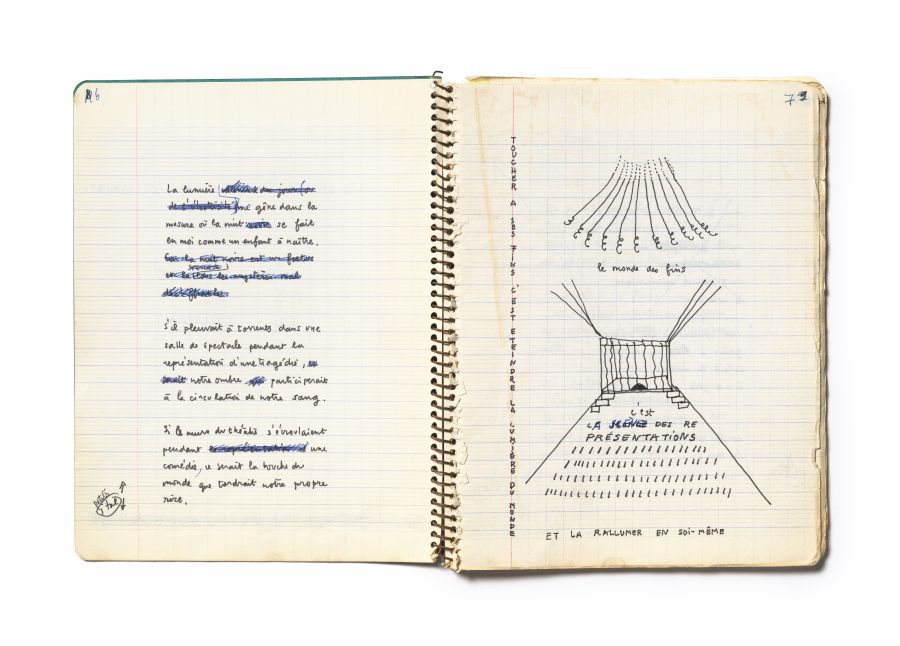 La lumière
me gêne dans la
mesure où la nuit se fait
en moi comme un enfant à naître.
s'il pleuvait à torrents dans une
salle de spectacle pendant la
représentation d'une tragédie,
notre ombre participerait
à la circulation de notre sang.
Si les murs du théâtre s'écroulaient
pendant une
comédie, ce serait la bouche du
monde que tordrait notre propre
rire.
79
TOUCHER A SES FINS C'EST ETEINDRE LA LUMIÈRE DU MONDE
le monde des fins
c'est
LA SCÈNE DES RE
PRÉSENTATIONS
ET LA RALLUMER EN SOI-MÊME